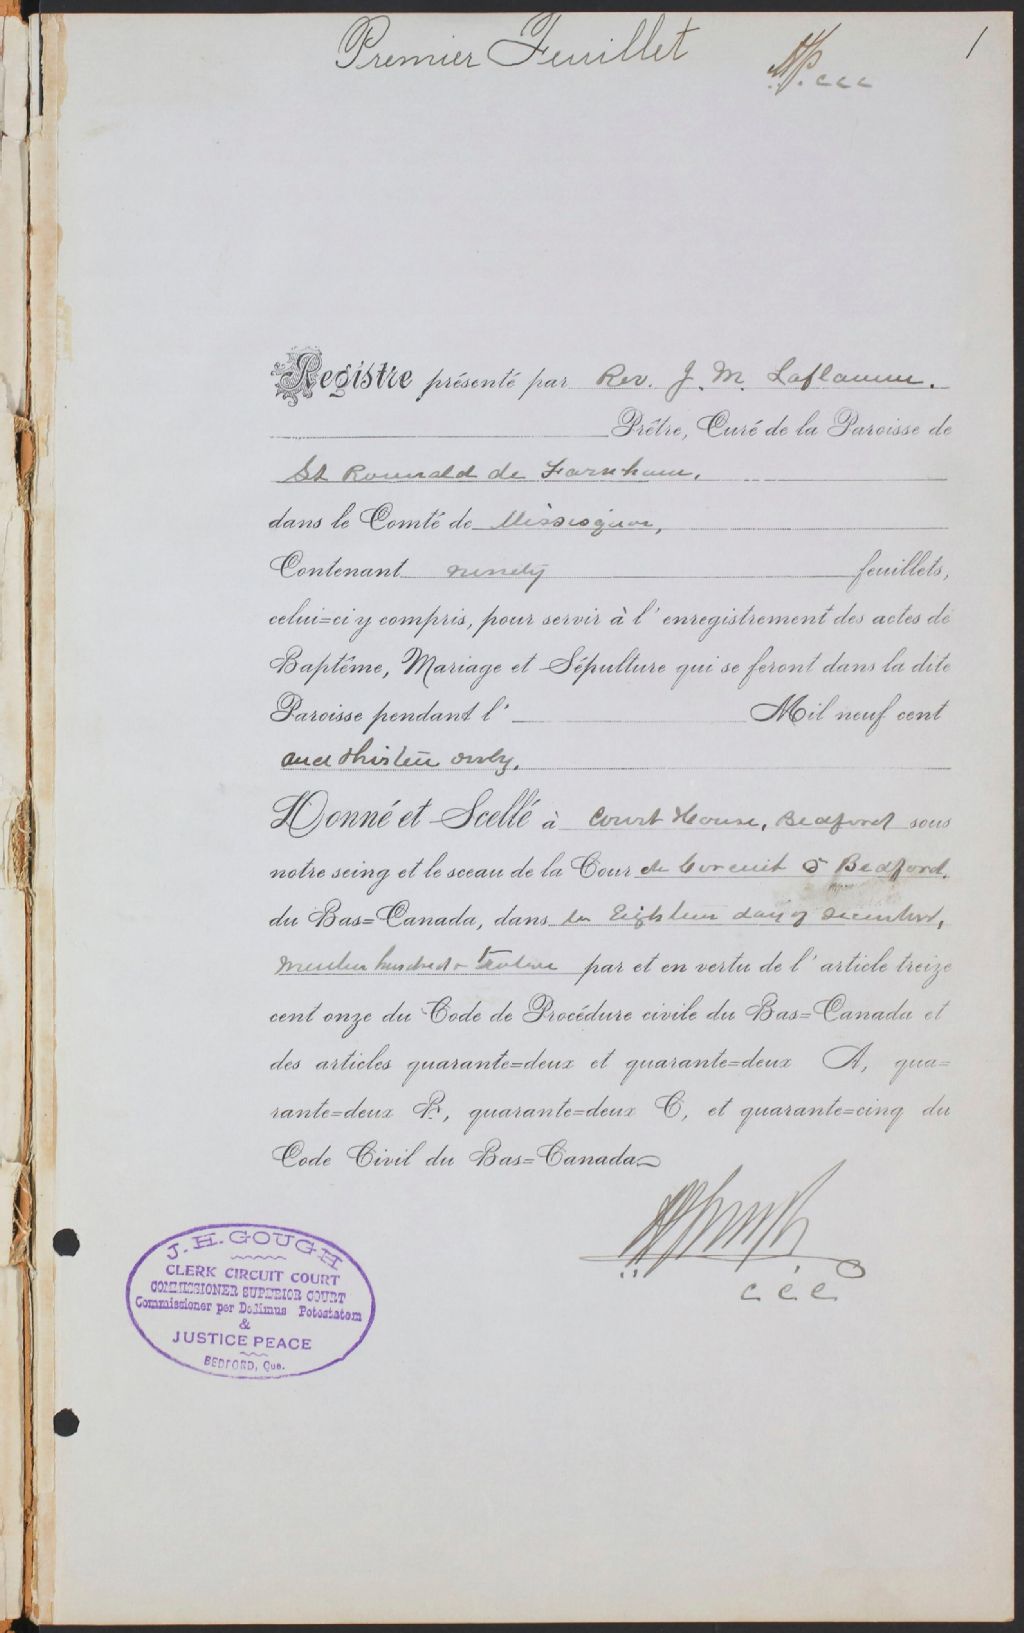 Premier Feuillet
1
c c c
Registre présenté par Rev. J. M. Laflamme.
Prêtre, Curé de la Paroisse de
St Romuald de Farnham,
dans le Comté de Missisquoi,
Contenant ninety feuillets,
celui=ci y compris, pour servir à l'enregistrement des actes de
Baptême, Mariage et Sépulture qui se feront dans la dite
Paroisse pendant l' Mil neuf cent
and thirteen only.
Donné et Scellé à Court House, Bedford sous
notre seing et le sceau de la Cour de Circuit à Bedford.
du Bas=Canada, dans le Eighteen day of December,
hundred + twelve par et en vertu de l'article treize
cent onze du Code de Procédure civile du Bas=Canada et
des articles quarante=deux et quarante=deux A, qua=
rante=deux B, quarante=deux C, et quarante=cinq du
Code Civil du Bas=Canada
C C C
J. H. GOUGH
CLERK CIRCUIT COURT
COMMISSIONER SUPERIOR COURT
Commissioner per Dedimus Potestatem
&
JUSTICE PEACE
BEDFORD, Que.